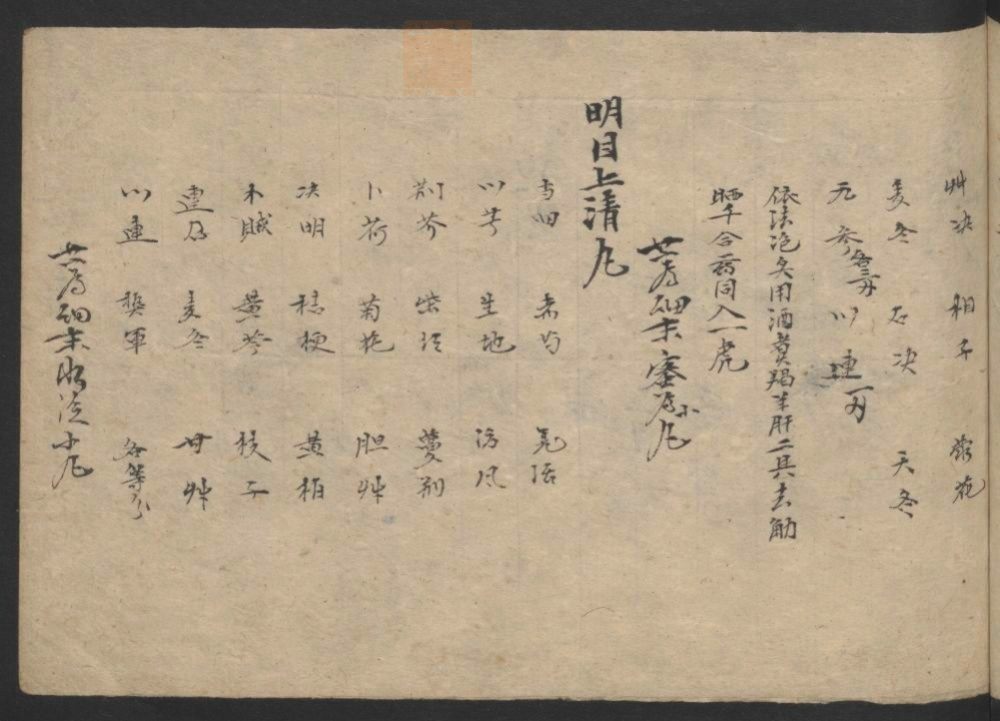 艸决 相子 菊花
麦冬 石决 天冬
元参各三分 川連一刄
依法泡炙用酒煑羯羊肝二具去筋
晒干合藥同入一处
共為細末蜜水小丸
明目上清丸
当归 赤芍 羌活
川芎 生地 防风
荆芥 柴胡 蔓荆
卜荷 菊花 胆艸
决明 桔梗 黄柏
木賊 黄芩 枝子
連召 麦冬 甘艸
川連 獎軍 各等分
共為細末水泛小丸